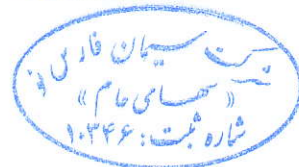 شرکت سیمان فارس نو
« سهامی عام »
شماره ثبت : ۱۰۳۴۶